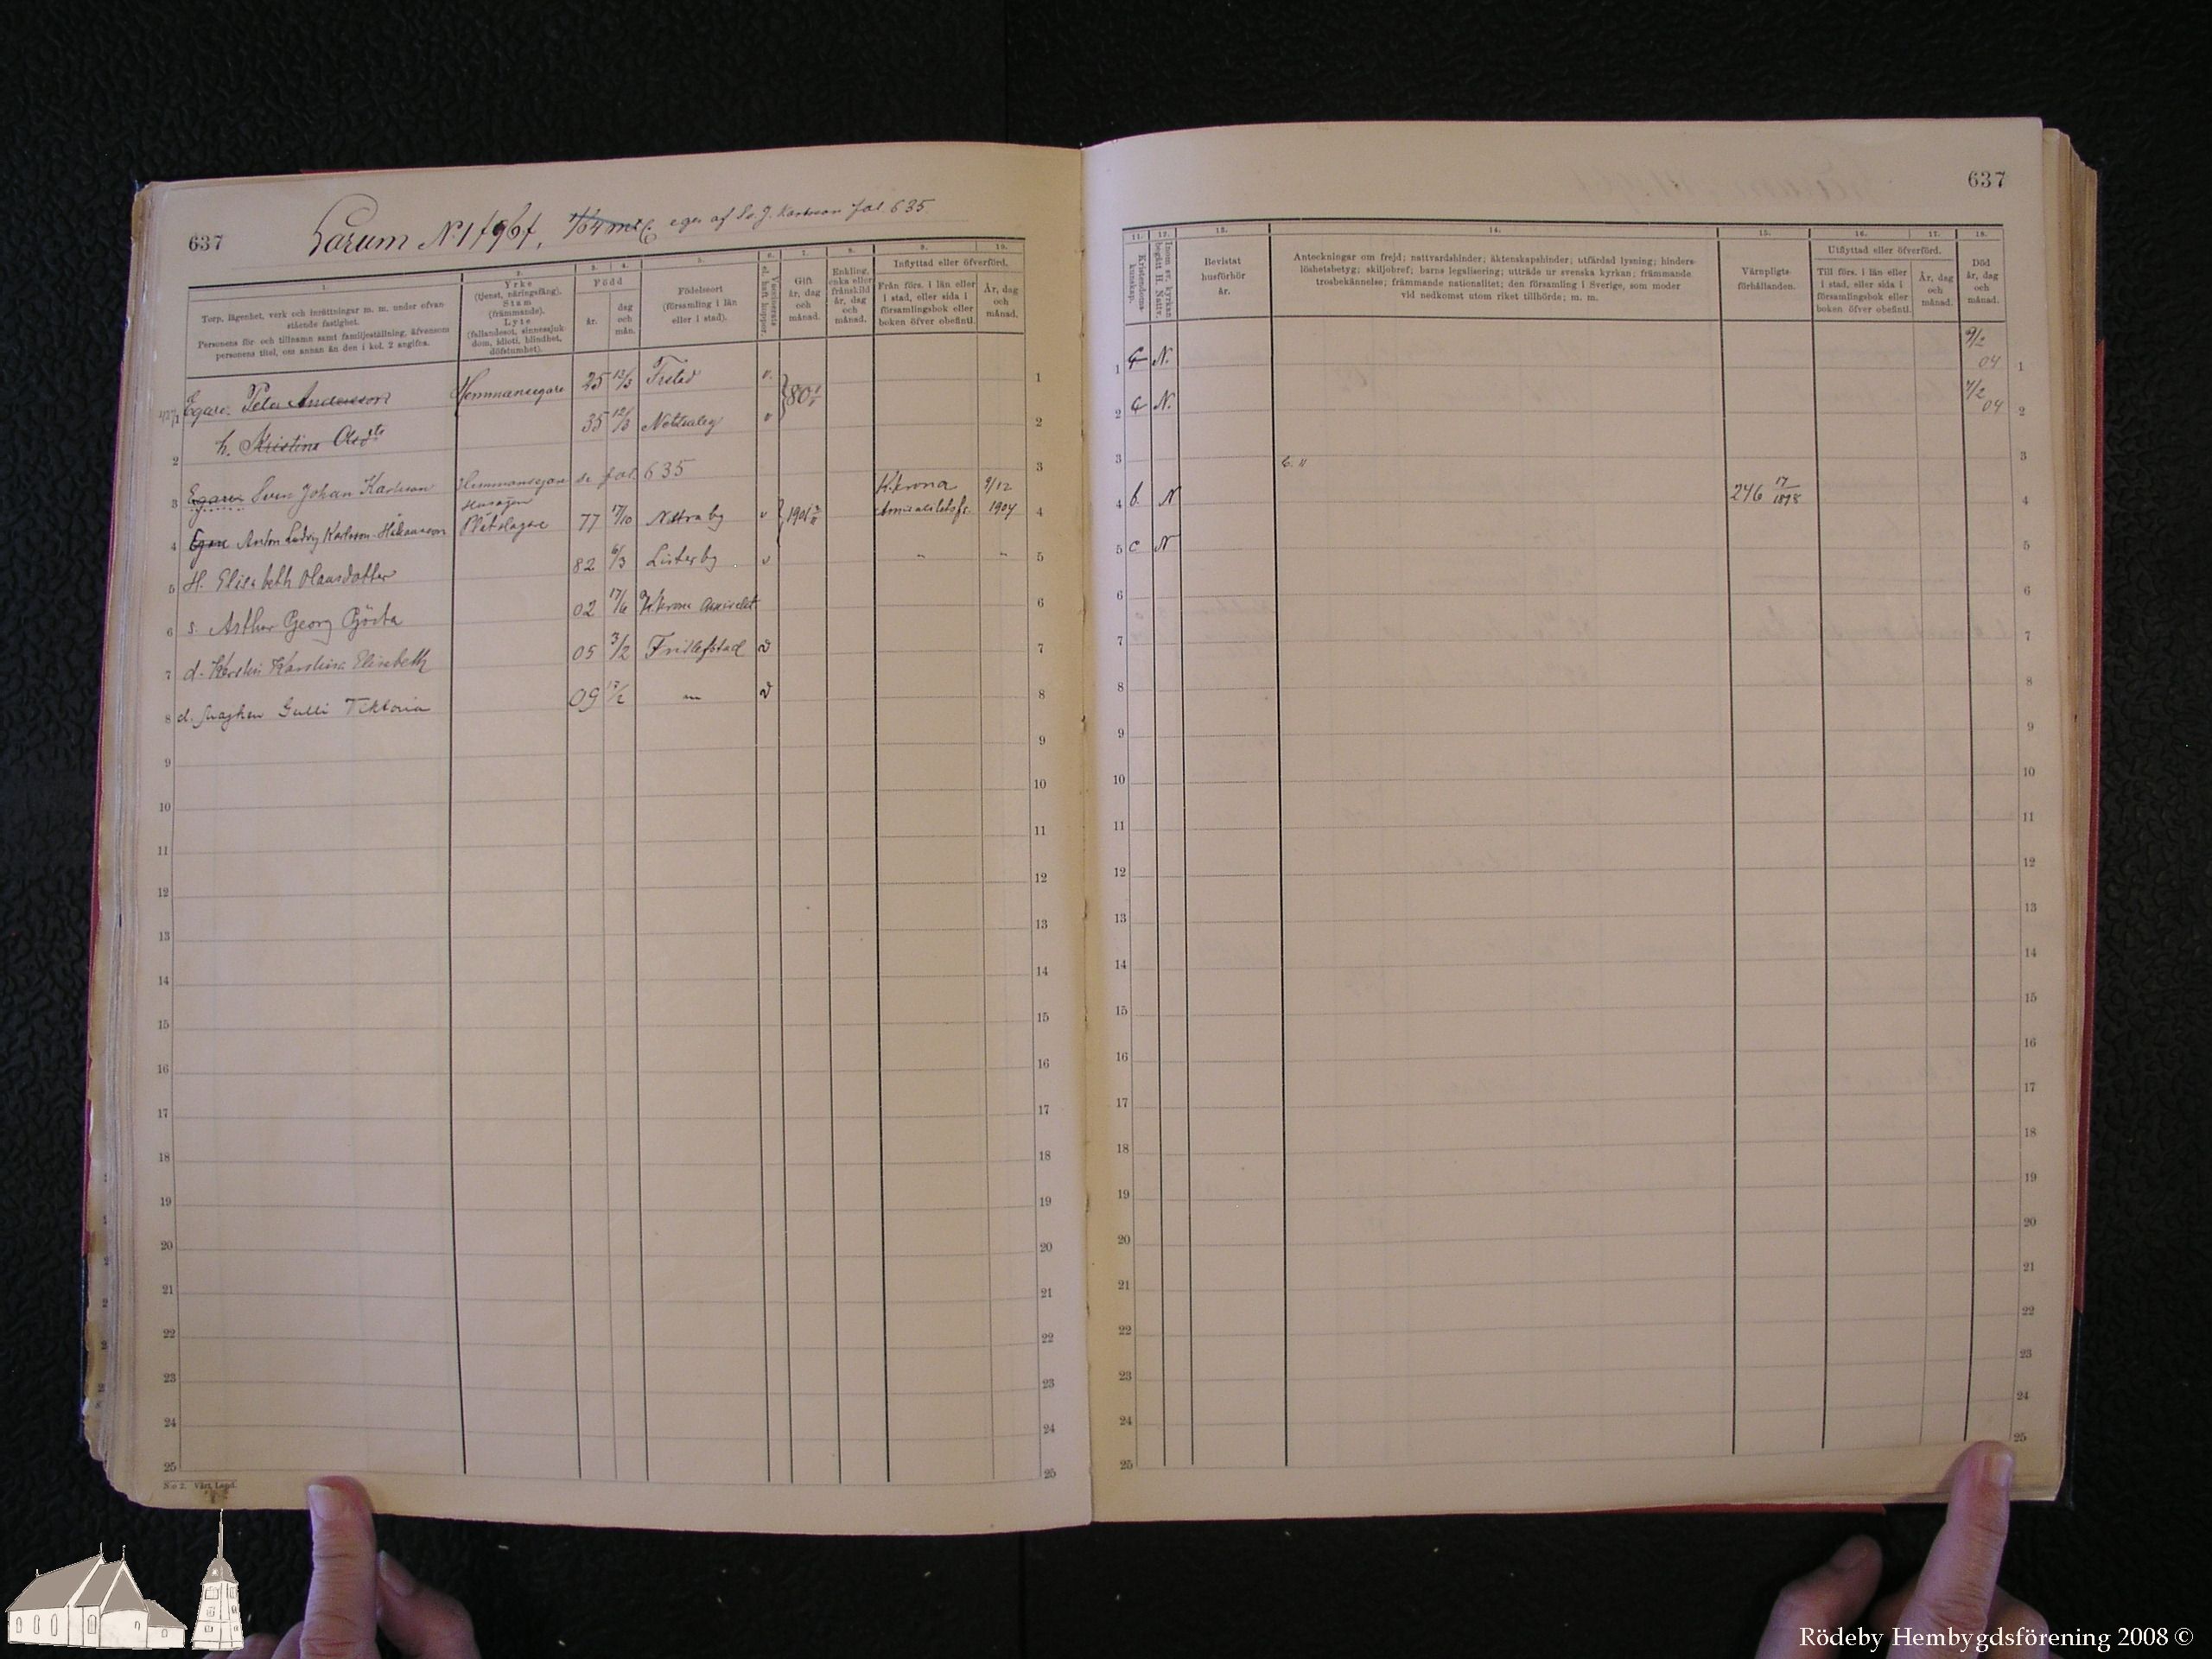 637
Larum N:1
eges af Sv. J. Karlsson fol. 635
637
1. 2. 3. 4. 5. 6. 7. 8. 9. 10.
Torp, lägenhet, verk och inrättningar m. m. under ofvanstående fastighet.
Personens för- och tillnamn samt familjeställning, äfvensom personens titel, om annan än den i kol. 2 angifna.
Yrke
(tjenst, näringsfång),
Stam
(främmande),
Lyte
(fallandesot, sinnessjukdom, idioti, blindhet, döfstumhet).
Född
år.
dag och mån.
Födelseort
(församling i län eller i stad).
Vaccinerats el. haft koppor.
Gift
år, dag och månad.
Enkling, enka eller frånskild
år, dag och månad.
Inflyttad eller öfverförd.
Från förs. i län eller i stad, eller sida i församlingsbok eller boken öfver obefintl.
År, dag och månad.
11. 12. 13. 14. 15. 16. 17. 18.
Kristendomskunskap.
Inom sv. kyrkan begått H. Nattv.
Bevistat husförhör år.
Anteckningar om frejd; nattvardshinder; äktenskapshinder; utfärdad lysning; hinderslöshetsbetyg; skiljobref; barns legalisering; utträde ur svenska kyrkan; främmande trosbekännelse; främmande nationalitet; den församling i Sverige, som moder vid nedkomst utom riket tillhörde; m. m.
Värnpligtsförhållanden.
Utflyttad eller öfverförd.
Till förs. i län eller i stad, eller sida i församlingsbok eller boken öfver obefintl.
År, dag och månad.
Död
år, dag och månad.
1 Egare. Peter Andersson Hemmansegare 25 13/3 Frstad v. 80 1 N. 9/2 04 1
2 h. Kristina 35 12/3 v 2 N. 7/2 04 2
3 Egare Sven Johan Karlsson Hemmansegare se fol. 635 3
4 Egare Anton Ludvig Karlsson-Håkansson Husägare Plåtslagare 77 17/10 Nättraby v 1901 K.krona Amiralitetsfs. 9/12 1904 4 b. N 246 17/1898 4
5 H. Elisabeth Olausdotter 82 6/3 Listerby v " " 5 c N 5
6 s. Arthur Georg Gösta 02 17/6 K.krona Amiralitet 6
7 d. Kerstin Karolina Elisabeth 05 3/2 Fridlefstad v 7
8 d. Gulli Viktoria 09 " v 8
9 9 9 9
10 10 10 10
11 11 11 11
12 12 12 12
13 13 13 13
14 14 14 14
15 15 15 15
16 16 16 16
17 17 17 17
18 18 18 18
19 19 19 19
20 20 20 20
21 21 21 21
22 22 22 22
23 23 23 23
24 24 24 24
25 25 25 25
N:o 2.
Rödeby Hembygdsförening 2008 ©